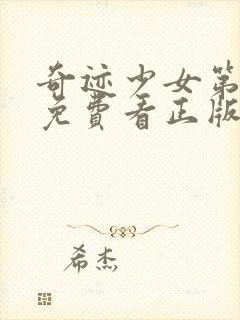 奇迹少女第
免費看正版
希杰